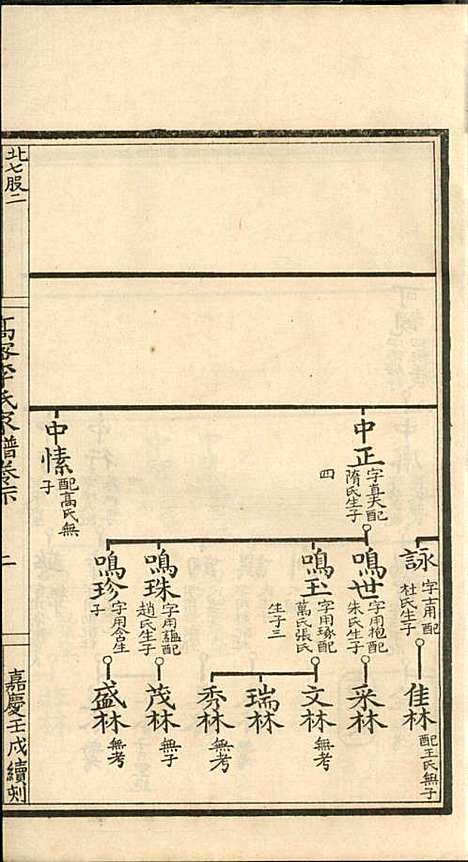 中正 字直夫配隋氏生子四
中愫 配高氏無子
詠 字士甫配杜氏生子
鳴世 字用抱配朱氏生子
鳴玉 字用琢配萬氏張氏生子三
鳴珠 字用韞配趙氏生子
鳴珍 字用含生子
佳林 配王氏無子
采林
文林 無考
瑞林
秀林 無考
茂林 無子
盛林 無考
北七股二
高密李氏家譜卷示
二
嘉慶壬戌續刻